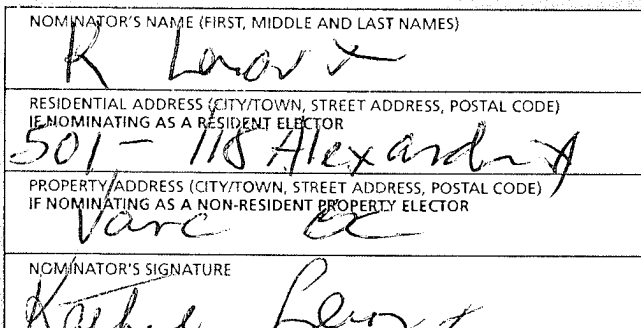 NOMINATOR'S NAME (FIRST, MIDDLE AND LAST NAMES)
R
RESIDENTIAL ADDRESS (CITY/TOWN, STREET ADDRESS, POSTAL CODE)
IF NOMINATING AS A RESIDENT ELECTOR
501 - 118 Alexander
PROPERTY ADDRESS (CITY/TOWN, STREET ADDRESS, POSTAL CODE)
IF NOMINATING AS A NON-RESIDENT PROPERTY ELECTOR
Vanc
NOMINATOR'S SIGNATURE